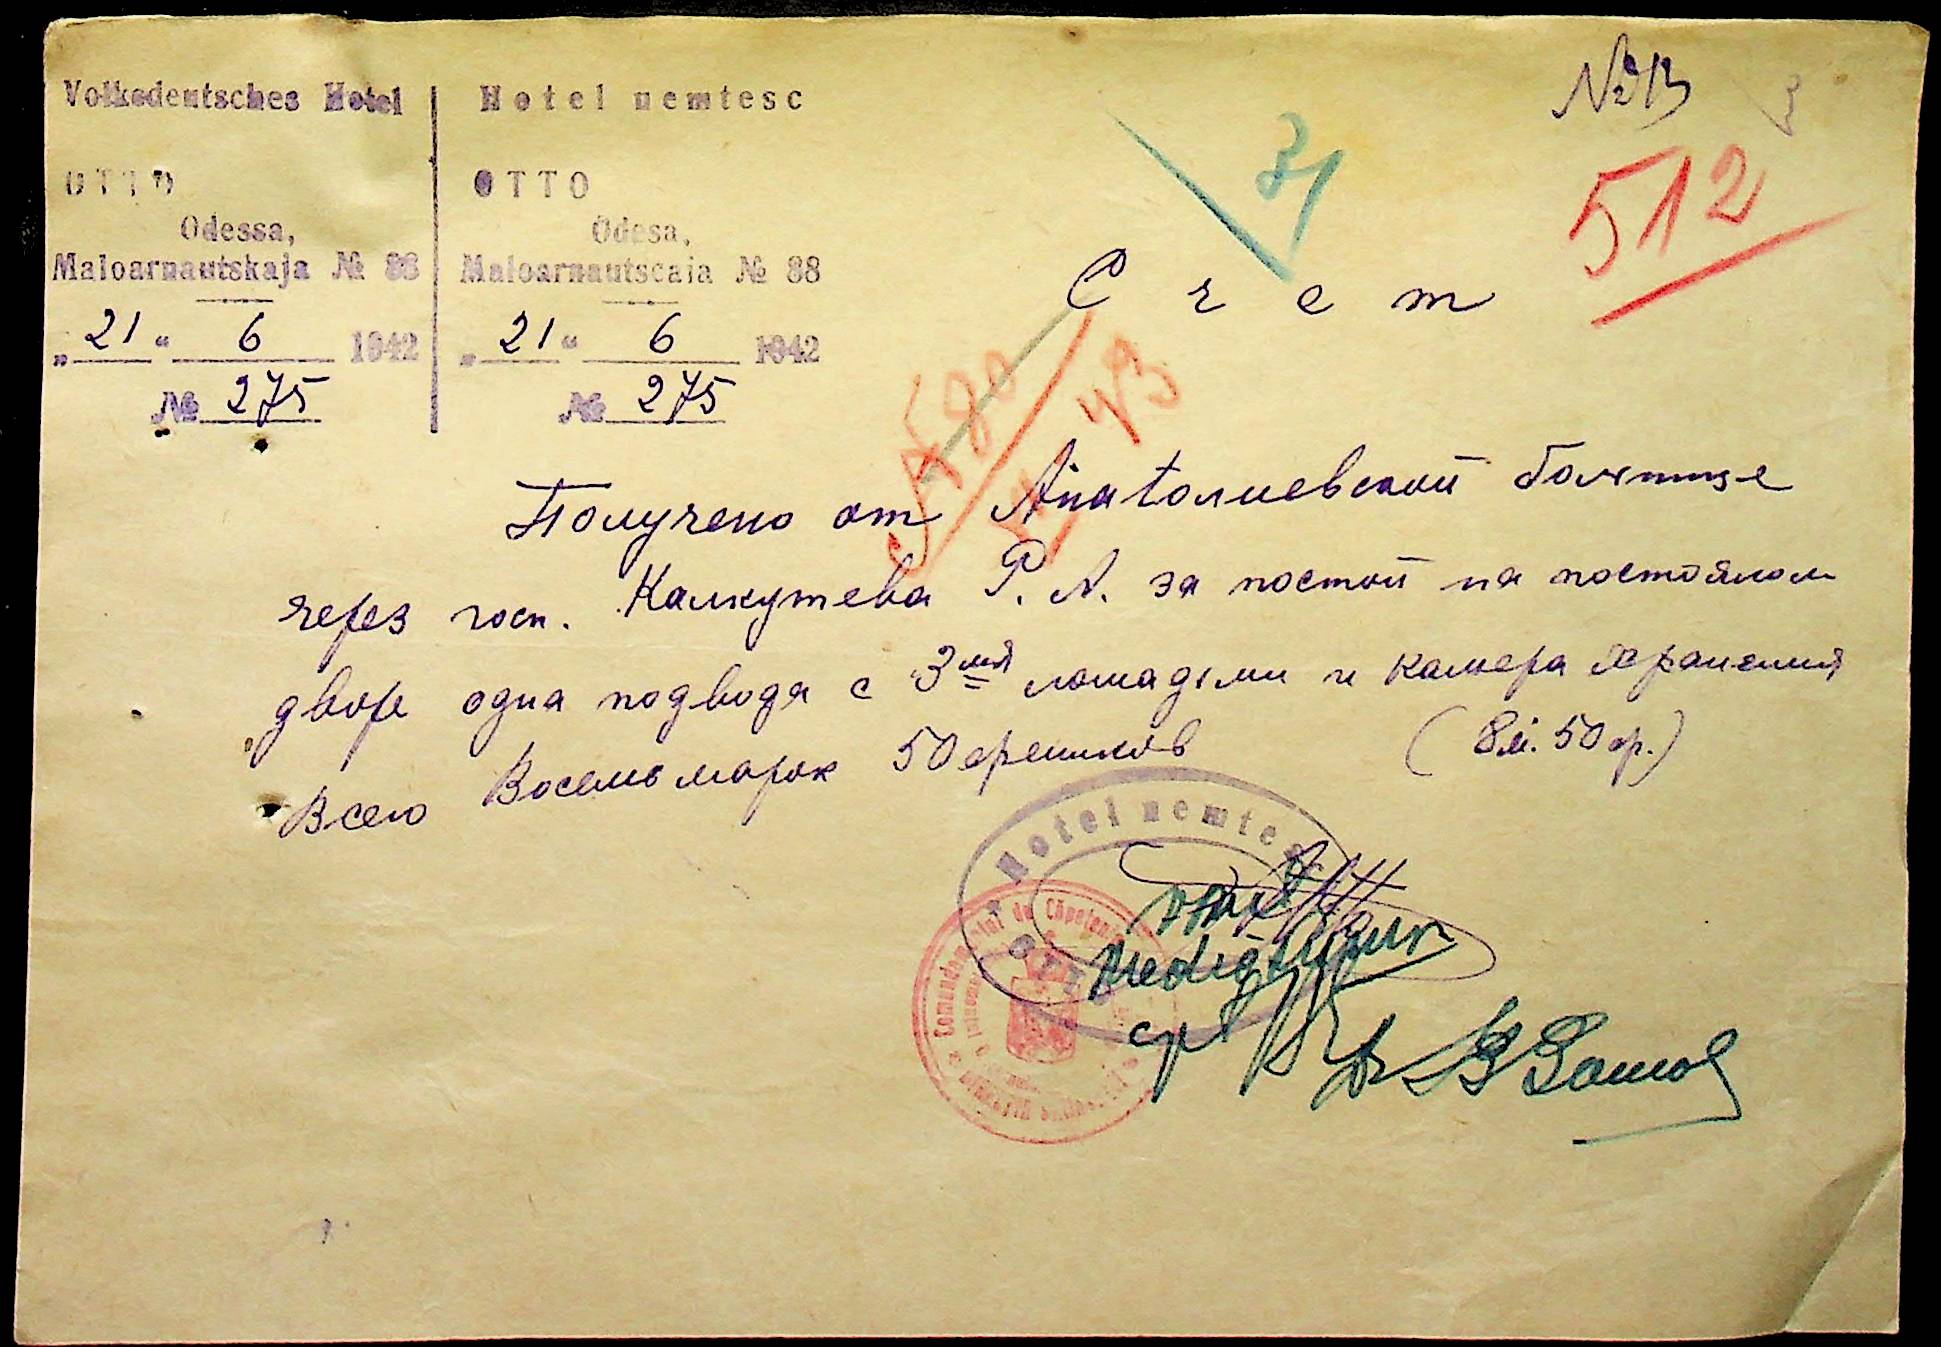 Volksdeutsches Hotel
OTTO
Odessa,
Maloarnautskaja № 88
„21“ 6 1942
№ 275
Hotel nemtesc
OTTO
Odesa,
Maloarnautscaia № 88
„21“ 6 1942
№ 275
№ 13
31
512
Счет
№ 80
43
Получено от Анатолиевской болнице
через госп. Калкутева Р. А. за постой на постоялом
дворе одна подвода с 3мя лошадьми и камера хранения
Всего Восемь марок 50 фенихов (8 м. 50 ф.)
Hotel nemtesc
OTTO